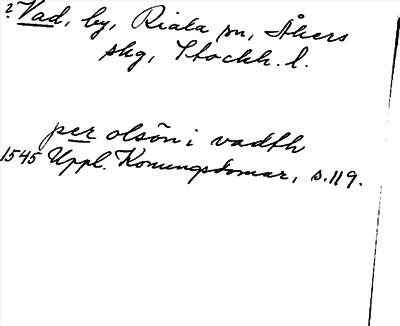 ? Vad, by, Riala sn, Åkers
skg, Stockh. l.
per olsön i vadth
1545 Uppl. Konungsdomar, s. 119.